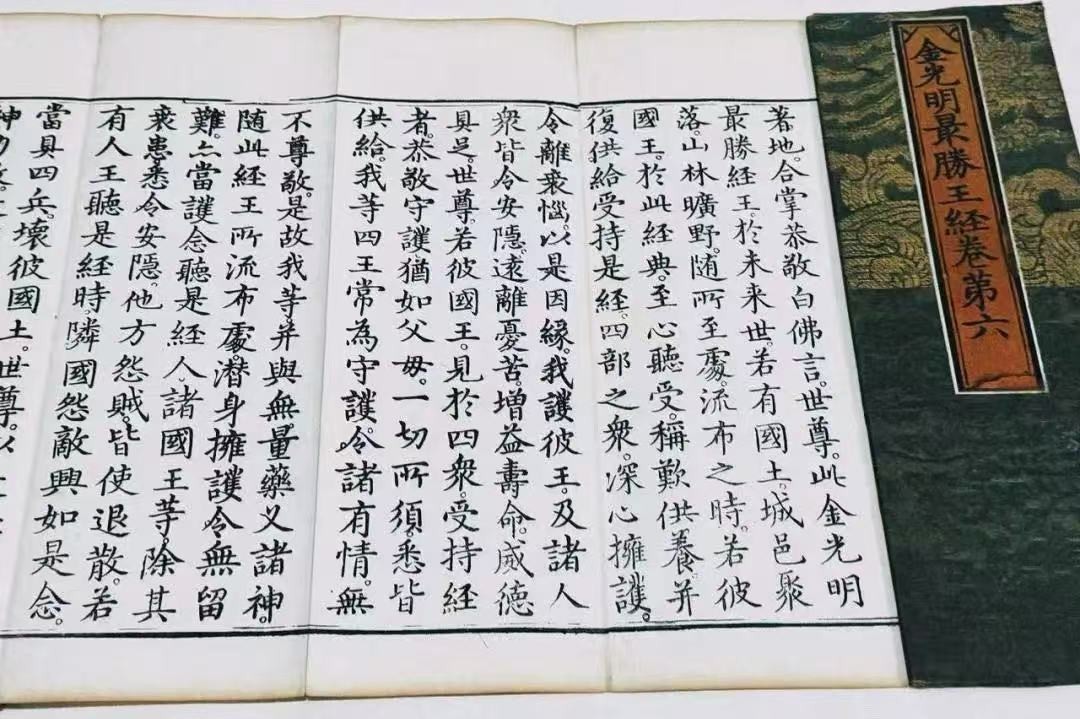 金光明最勝王經卷第六
著地。合掌恭敬白佛言。世尊。此金光明
最勝經王。於未来世。若有國土。城邑聚
落。山林曠野。随所至處。流布之時。若彼
國王。於此經典。至心聽受。稱歎供養。并
復供給受持是經。四部之衆。深心擁護。
令離衰惱。以是因緣。我護彼王。及諸人
衆皆令安隱。遠離憂苦。增益壽命。威德
具足。世尊。若彼國王。見於四衆。受持經
者。恭敬守護。猶如父母。一切所須。悉皆
供給。我等四王常為守護。令諸有情。無
不尊敬。是故我等并與無量藥叉諸神。
随此經王所流布處。潛身擁護令無留
難。亦當護念聽是經人諸國王等。除其
衰患悉令安隱。他方怨賊。皆使退散。若
有人王聽是經時。隣國怨敵興如是念。
當具四兵。壞彼國土。世尊。以
神力